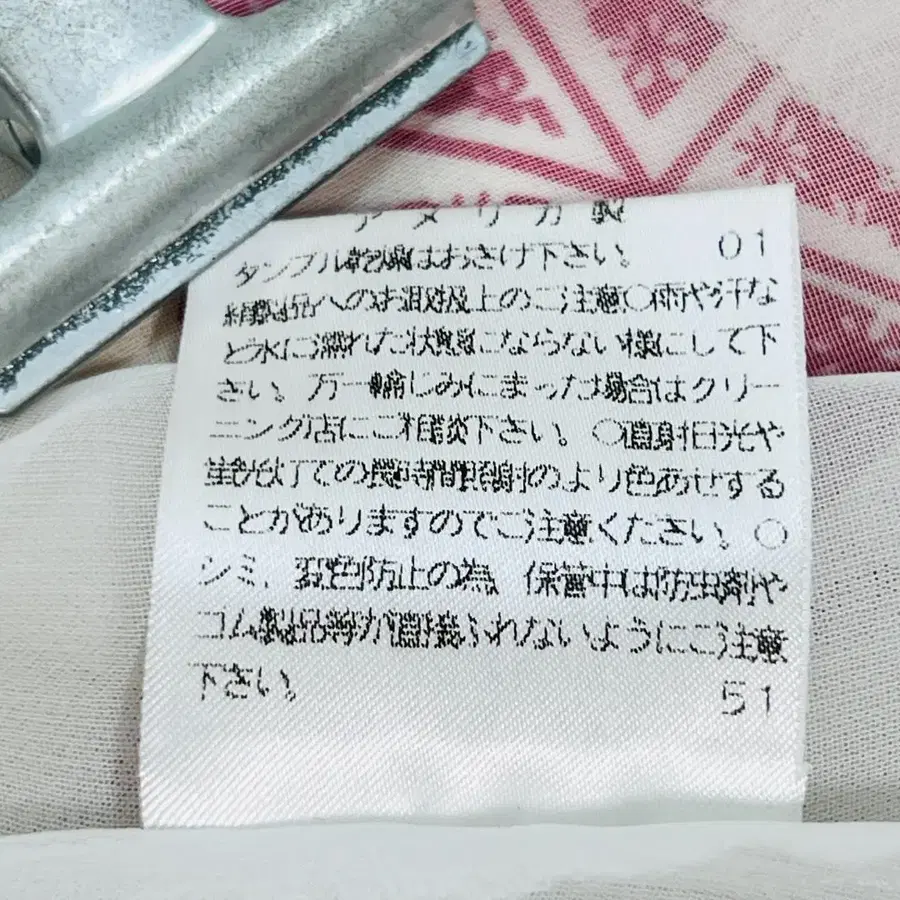 アメリカ製
タンブル乾燥はおさけ下さい。 01
絹製品へのお取扱上のご注意○雨や汗な
ど水に濡れた状態にならない様にして下
さい。万一輪じみにまった場合はクリー
ニング店にご相談下さい。○直射日光や
蛍光灯での長時間照射のより色あせする
ことがありますのでご注意ください。○
シミ、変色防止の為、保管中は防虫剤や
ゴム製品等が直接ふれないようにご注意
下さい。 51